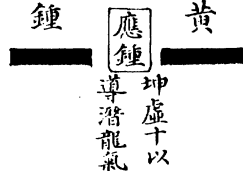 黄鍾
應鍾
坤虛十以
導潛龍氣